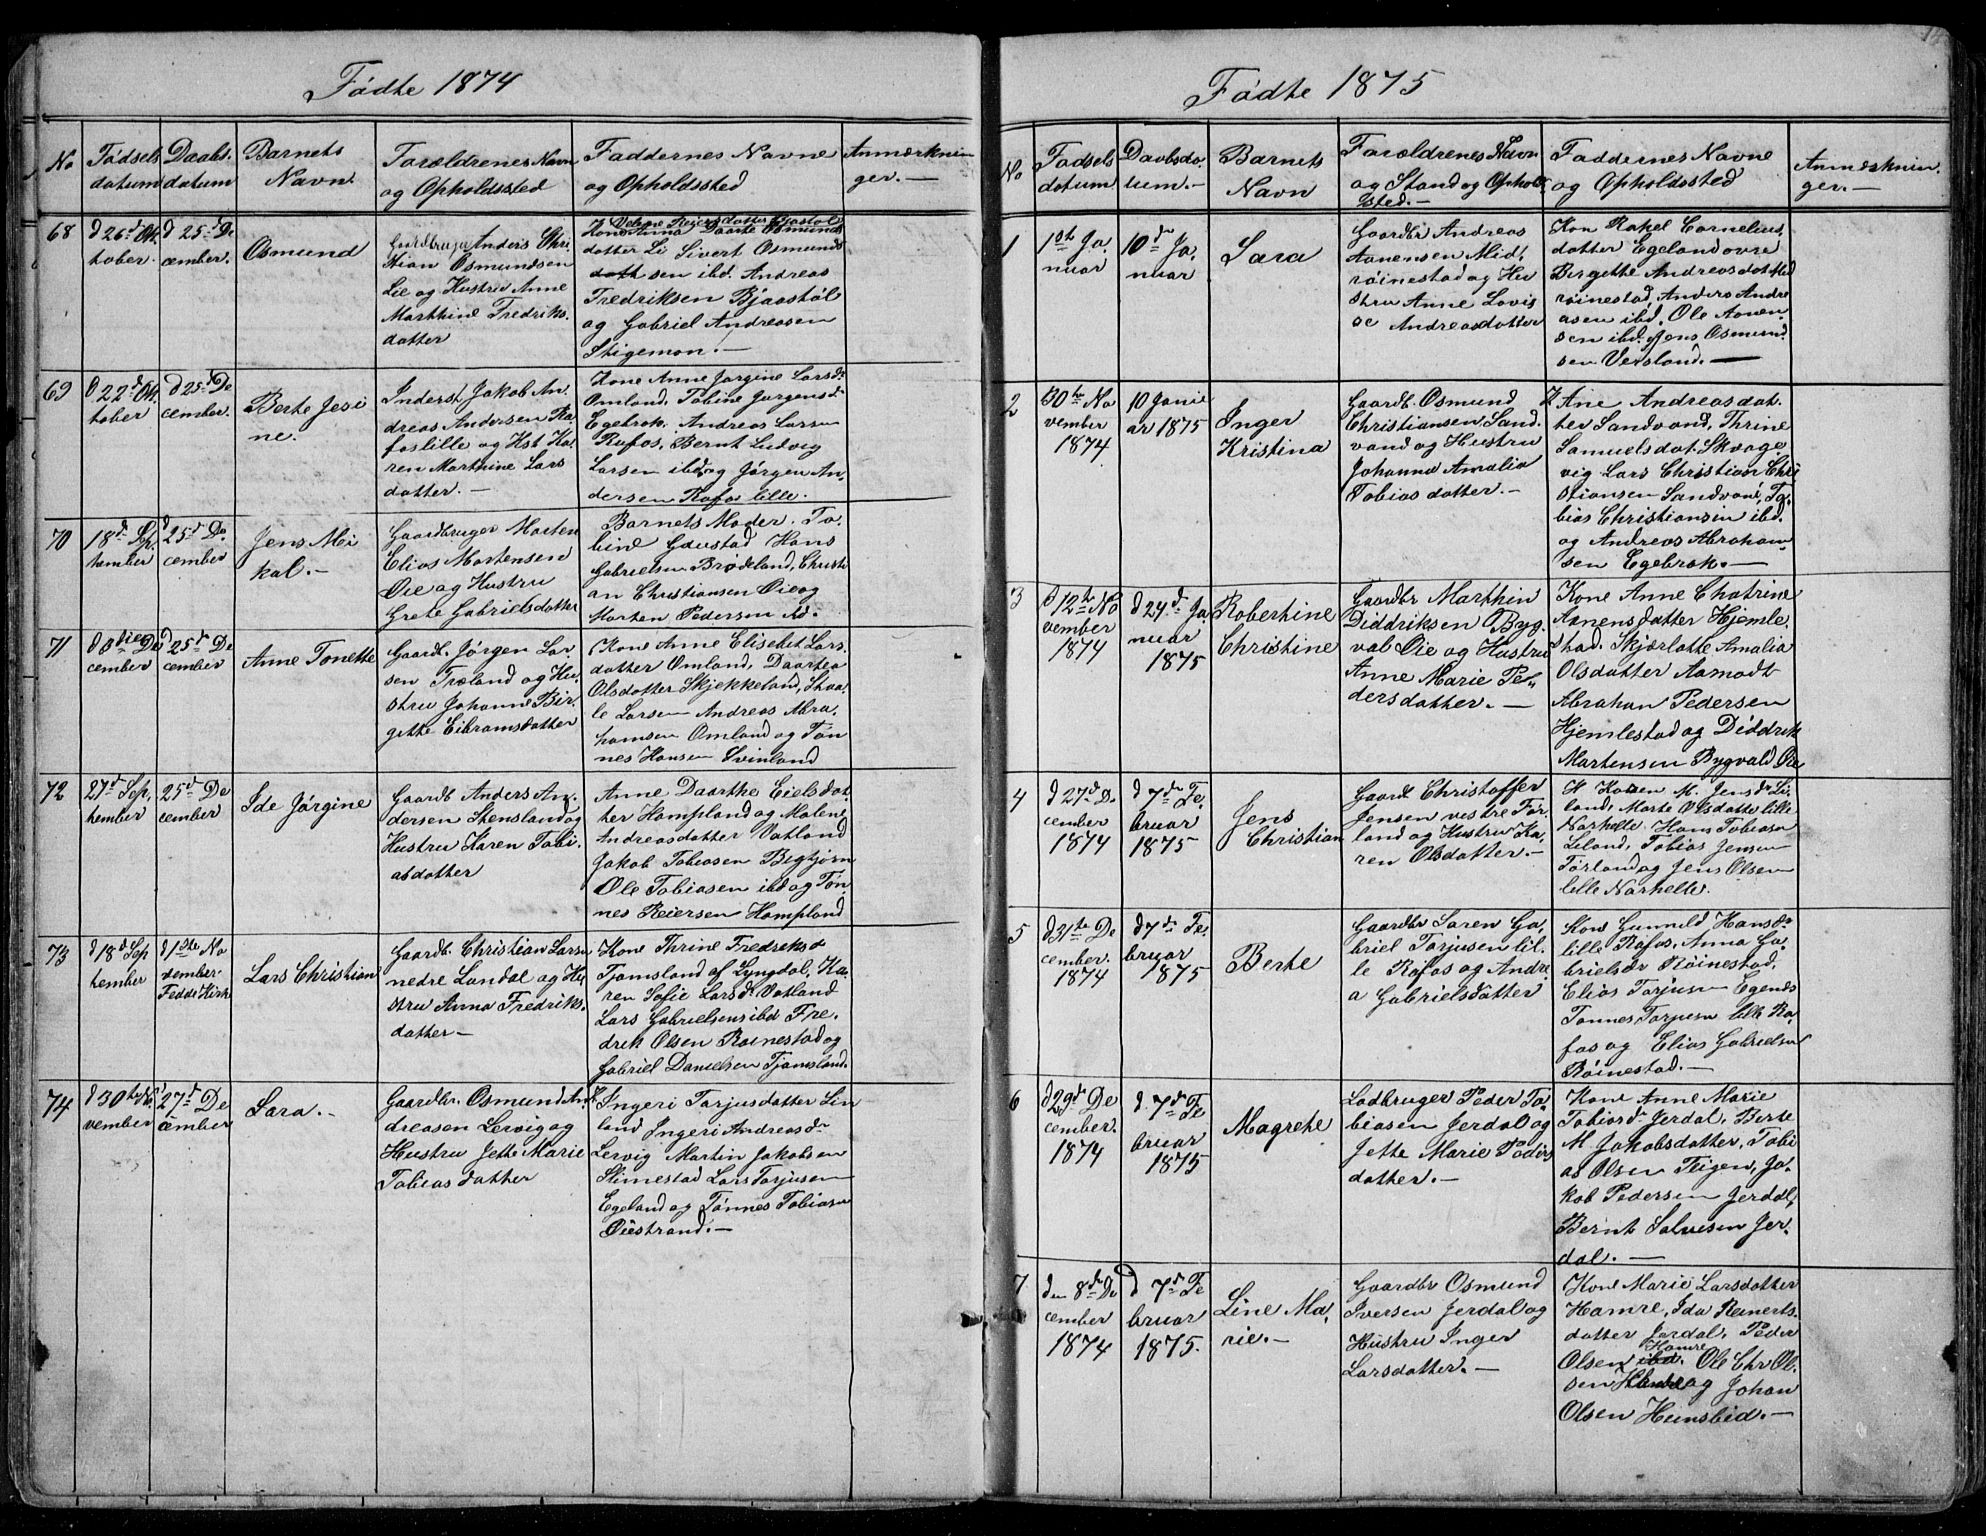 Fødte 1874
No
Fødsels
datum
Daabs.
datum
Barnets
Navn.
Forældrenes Navn
og Opholdssted
Faddernes Navne
og Opholdssted
Anmærknin
ger. —
68
d 26d Ok
tober.
d 25d De
cember.
Osmund
Gaardbruger Anders Chri
stian Osmundsen
Lie og Hustru Anne
Marthine Fredriks.
datter
Reiersdatter Bjaastøl
Kone Anna Daarte Osmunds
datter Li Sivert Osmunds
sen ibd. Andreas
Fredriksen Bjaastøl
og Gabriel Andreasen
Stigemon. —
69
d 22d Ok
tober
d 25d De
cember.
Berte Jesi
ne.
Inderst Jakob An.
dreas Andersen Ra
foslille og Hst Ka
ren Marthine Lars
datter. —
Kone Anne Jørgine Larsdr
Omland. Tobine Jørgensdr
Egebrok. Andreas Larsen
Rafos, Bernt Ludvig
Larsen ibd og Jørgen An.
dersen Rafos lille.
70
18d Sep.
tember
d 25d De.
cember
Jens Mi
kal. —
Gaardbruger Morten
Elias Mortensen
Øie og Hustru
Grete Gabrielsdatter
Barnets Moder. To.
bine Gaustad Hans
Gabrielsen Brødeland, Christi
an Christiansen Øie og
Morten Pedersen ibd.
71
d 8de De
cember
d 25d De
cember
Anne Tonette
Gaardb. Jørgen Lar.
sen Træland og Hu
stru Johanne Bir.
gitte Eibramsdatter
Kone Anne Elisebet Lars
datter Omland, Daartea
Olsdatter Skjekkeland, Staa.
le Larsen Andreas Abra.
hamsen Omland og Tøn
nes Hansen Svinland
72
27d Sep,
tember
25d De
cember
Ide Jørgine
Gaardb Anders An.
dersen Stensland og
Hustru Karen Tobi.
asdatter
Anne Daarthe Eielsdat.
ter Hampland og Malene
Andreasdatter Vatland
Jakob Tobiasen Bigtjørn
Ole Tobiasen ibd og Tøn.
nes Reiersen Hampland
73
d 18d Sep
tember
d 1ste No
vember
Fedde Kirke
Lars Christian
Gaardb. Christian Larsen
nedre Landal og Hu
stru Anna Fredriks.
datter —
Kone Thrine Fredriksdr
Tjomsland af Lyngdal, Ka.
ren Sofie Larsdr Vatland
Lars Gabrielsen ibd Fre.
drik Olsen Røinestad og
Gabriel Danielsen Tjomsland.
74
d 30te No.
vember
27d De
cember
Sara. —
Gaardbr. Osmund An.
dreasen Lervig og
Hustru Jette Marie
Tobias datter
Ingeri Tarjusdatter Lin
land Ingeri Andreasdr
Lervig Martin Jakobsen
Stimestad Lars Tarjusen
Egeland og Tønnes Tobiasen
Øiestrand. —
Fødte 1875
No
Fødsels
datum
Daabsda.
tum. —
Barnets
Navn
Forældrenes Navn
og Stand og Ophold
sted. —
Faddernes Navne
og Opholdssted
Anmærknin.
ger. —
1
1ste Ja
nuar
10de Ja,
nuar
Sara
Gaardbr Andreas
Aanensen Mid.
røinestad og Hu
stru Anne Lovis
se Andreasdatter
Kon Rakel Cornelius
datter Egeland øvre
Birgitte Andreasdat Mid
røinestad, Anders Andre
asen ibd. Ole Aanen.
sen ibd. Jens Osmund
sen Versland. —
2
30te No
vember
1874
10 Janu
ar 1875
Inger
Kristina
Gaardb. Osmund
Christiansen Sand.
vand og Hustru
Johanna Amalia
Tobias datter. —
K Ane Andreasdat.
ter Sandvand, Thrine
Samuelsdat. Skrage
vig Lars Christian Chri
stiansen Sandvand, To.
bias Christiansen ibd.
og Andreas Abraham
sen Egebrok. —
3
d 12te No
vember
1874
d 24d Ja
nuar
1875
Robertine
Christine
Gaardbr Marthin
Diddriksen Byg.
val Øie og Hustru
Anne Marie Pe.
dersdatter. —
Kone Anne Chatrine
Aanensdatter Hjemle
stad. Skjarlotte Amalia
Olsdatter Aamodt
Abraham Pedersen
Hjemlestad og Diddrik
Martensen Bygvald Øie
4
d 27d De.
cember
1874
d 7de Fe.
bruar
1875
Jens
Christian
Gaardb Christoffer
Jensen vestre Tør
land og Hustru Ka.
ren Olsdatter —
K Karen M. Jensdr Li.
land, Marte Olsdatter lille
Narhelle. Hans Tobiasen
Liland, Tobias Jensen
Tørland og Jens Olsen
lille Narhelle.
5
d 31te De
cember.
1874
d 7de Fe.
bruar
1875
Berte
Gaardbr Søren Ga.
briel Tarjusen lil.
le Rafos og Andre
a Gabrielsdatter
Kone Gunnild Hansdr
lille Rafos, Anna Ga.
brielsdr Røinestad,
Elias Tarjusen Egenes
Tønnes Tarjusen lille Ra.
fos og Elias Gabrielsen
Røinestad. —
6
d 29de De
cember.
1874
d. 7de Fe
bruar
1875
Magrete
Lodbruger Peder To.
biasen Jerdal og
Jette Marie Peders
datter. —
Kone Anne Marie
Tobiasdr Jerdal, Berte
M. Jakobsdatter, Tobi
as Olsen Teigen, Ja.
kob Pedersen Jerdal,
Bernt Salvesen Jer.
dal. —
7
den 8de De
cember
1874
d 7de Fe
bruar
1875.
Line Ma,
rie. —
Gaardbr Osmund
Iversen Jerdal og
Hustru Inger
Larsdatter. —
Kone Marie Larsdatter
Hamre, Ida Reinerts.
datter Jerdal, Peder
Hamre
Olsen ibd. Ole Chr Ol.
sen og Johan
Olsen Hunsbed. —